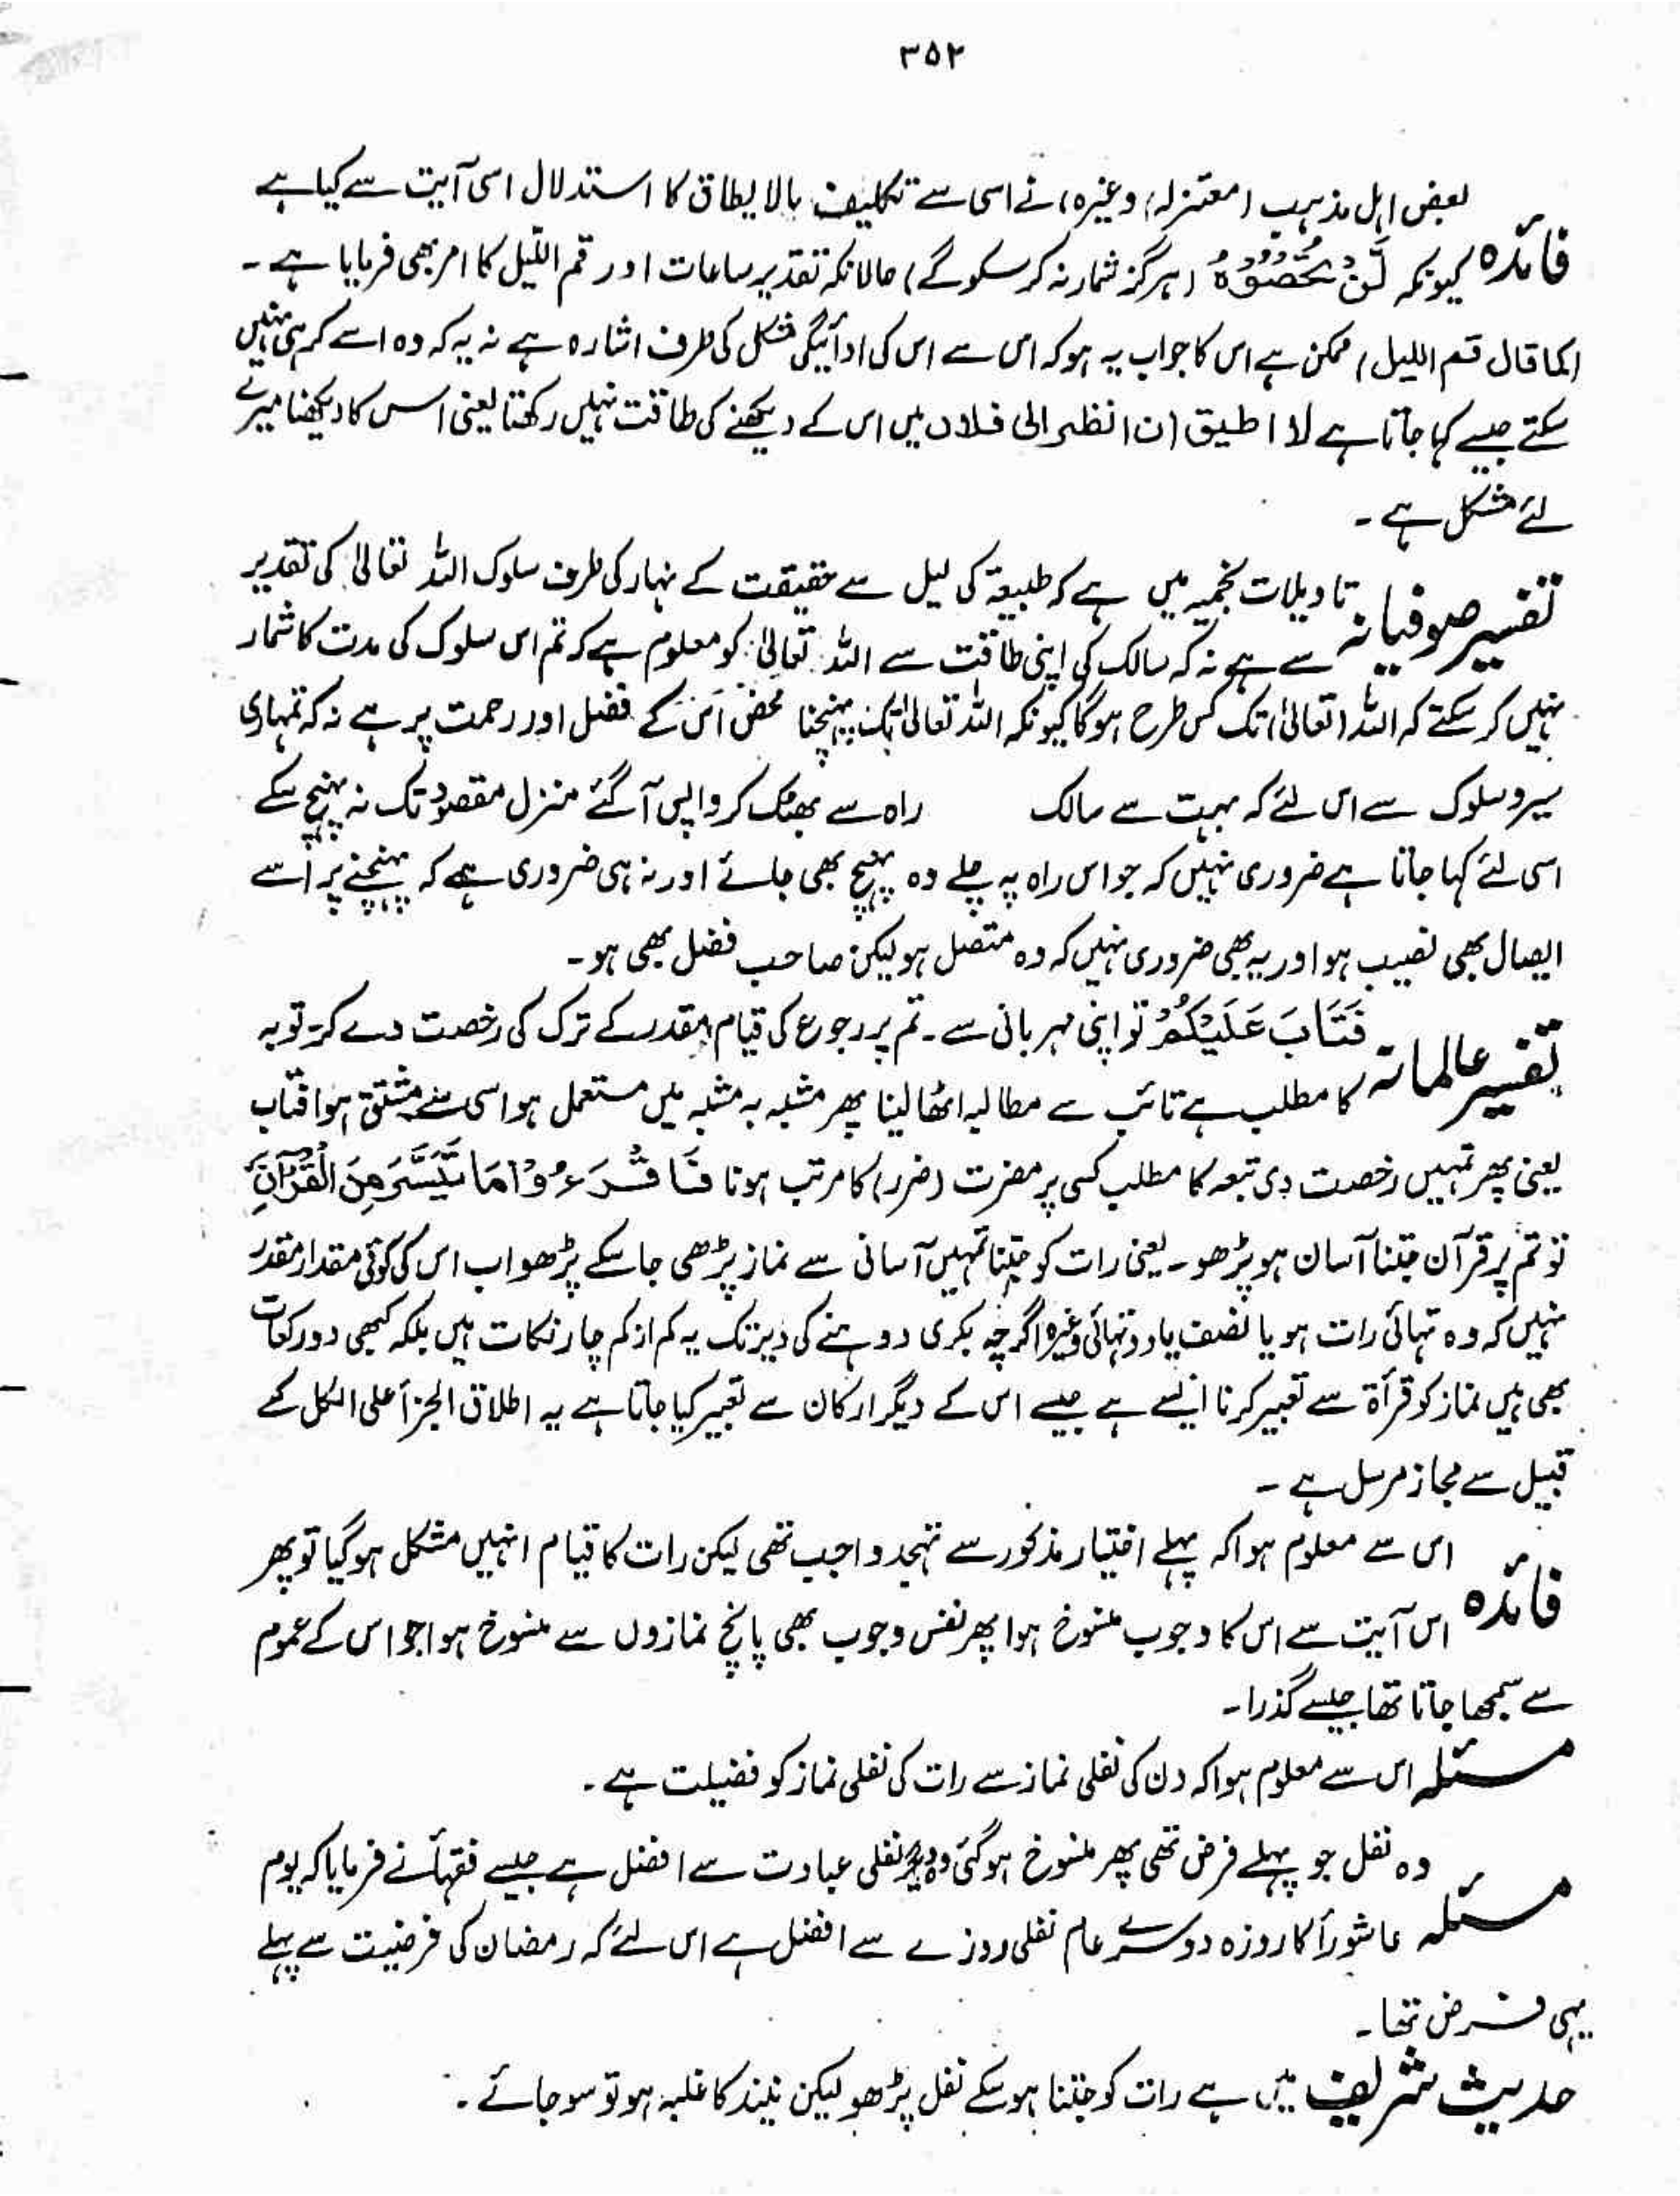 ۳۵۲
بعض اہل مذہب (معتزلہ) وغیرہ) نے اسی سے تکلیف بالا یطاق کا استدلال اسی آیت سے کیا ہے
فائدہ کیونکہ لَّنْ تُحْصُوْهُ (ہرگز شمار نہ کر سکو گے) حالانکہ تقدیر ساعات اور قم اللیل کا امر بھی فرمایا ہے ۔
(کما قال قم اللیل) ممکن ہے اس کا جواب یہ ہو کہ اس سے اس کی ادائیگی مشکل کی طرف اشارہ ہے نہ یہ کہ وہ اسے کر ہی نہیں
سکتے جیسے کہا جاتا ہے لا اطیق ان انظر الی فلاں میں اس کے دیکھنے کی طاقت نہیں رکھتا یعنی اس کا دیکھنا میرے
لئے مشکل ہے ۔
تفسیر صوفیانہ تاویلات نجمیہ میں ہے کہ طبیعۃ کی لیل سے حقیقت کے نہار کی طرف سلوک اللہ تعالیٰ کی تقدیر
سے ہے نہ کہ سالک کی اپنی طاقت سے اللہ تعالیٰ کو معلوم ہے کہ تم اس سلوک کی مدت کا شمار
نہیں کر سکتے کہ اللہ (تعالیٰ) تک کس طرح ہوگا کیونکہ اللہ تعالیٰ تک پہنچنا محض اس کے فضل اور رحمت پر ہے نہ کہ تمہاری
سیر و سلوک سے اس لئے کہ بہت سے سالک راہ سے بھٹک کر واپس آ گئے منزل مقصود تک نہ پہنچ سکے
اسی لئے کہا جاتا ہے ضروری نہیں کہ جو اس راہ پہ چلے وہ پہنچ بھی جائے اور نہ ہی ضروری ہے کہ پہنچنے پر اُسے
ایصال بھی نصیب ہو اور یہ بھی ضروری نہیں کہ وہ متصل ہو لیکن صاحب فضل بھی ہو ۔
تفسیر عالمانہ فَتَابَ عَلَيْكُمْ تو اپنی مہربانی سے ۔ تم پر رجوع کی قیام مقدر کے ترک کی رخصت دے کر توبہ
کا مطلب ہے تائب سے مطالبہ اٹھا لینا پھر مشبہ بہ مشبہ میں مستعمل ہوا اسی سے مشتق ہوا فتاب
یعنی پھر تمہیں رخصت دی تبعہ کا مطلب کسی پر مضرت (ضرر) کا مرتب ہونا فَاقْرَءُوْا مَا تَيَسَّرَ مِنَ الْقُرْاٰنِ
تو تم پر قرآن جتنا آسان ہو پڑھو ۔ یعنی رات کو جتنا تمہیں آسانی سے نماز پڑھی جا سکے پڑھو اب اس کی کوئی مقدار مقدر
نہیں کہ وہ تہائی رات ہو یا نصف یا دو تہائی وغیرہ اگرچہ بکری دوہنے کی دیر تک یہ کم از کم چار رکعات ہیں بلکہ کبھی دو رکعات
بھی ہیں نماز کو قرأۃ سے تعبیر کرنا ایسے ہے جیسے اس کے دیگر ارکان سے تعبیر کیا جاتا ہے یہ اطلاق الجز أعلی الکل کے
قبیل سے مجاز مرسل ہے ۔
فائدہ اس سے معلوم ہوا کہ پہلے اختیار مذکور سے تہجد واجب تھی لیکن رات کا قیام انہیں مشکل ہو گیا تو پھر
اس آیت سے اس کا وجوب منسوخ ہوا پھر نفس وجوب بھی پانچ نمازوں سے منسوخ ہوا جو اس کے عموم
سے سمجھا جاتا تھا جیسے گذرا ۔
مسئلہ اس سے معلوم ہوا کہ دن کی نفلی نماز سے رات کی نفلی نماز کو فضیلت ہے ۔
وہ نفل جو پہلے فرض تھی پھر منسوخ ہو گئی وہ دیگر نفلی عبادت سے افضل ہے جیسے فقہأ نے فرمایا کہ یوم
مسئلہ عاشورأ کا روزہ دوسرے عام نفلی روزے سے افضل ہے اس لئے کہ رمضان کی فرضیت سے پہلے
یہی فرض تھا ۔
حدیث شریف میں ہے رات کو جتنا ہو سکے نفل پڑھو لیکن نیند کا غلبہ ہو تو سو جائے ۔